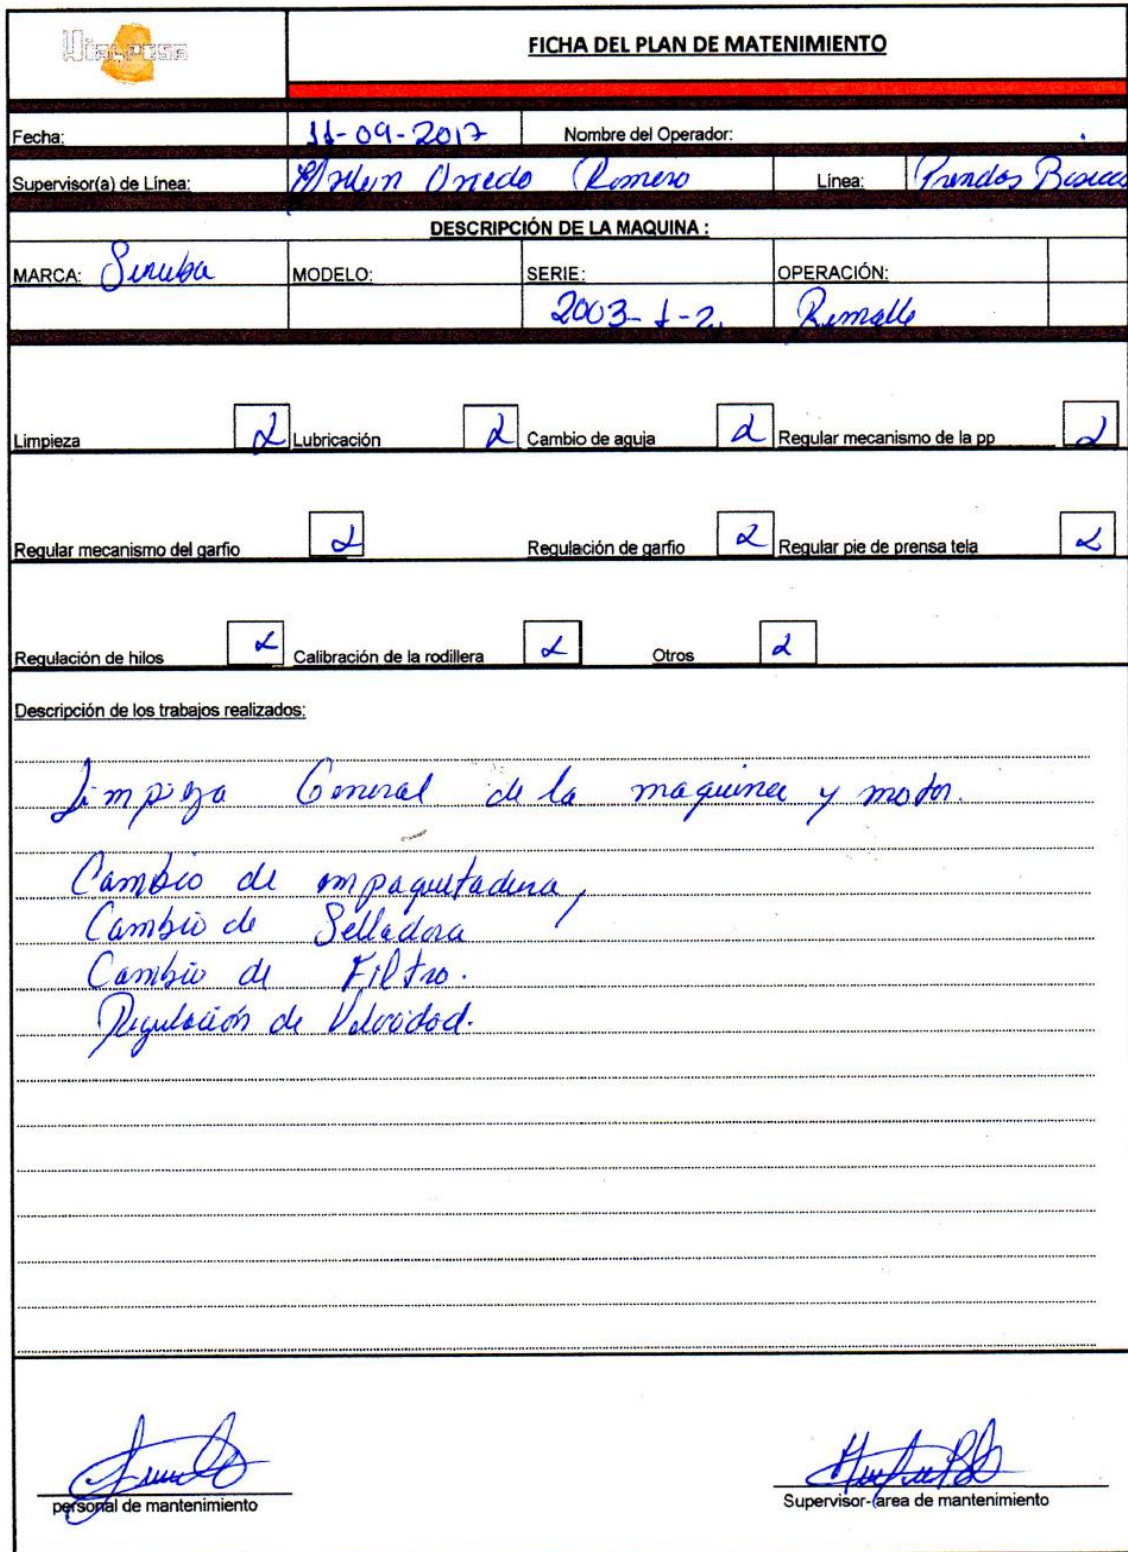 Vialpesa
FICHA DEL PLAN DE MATENIMIENTO
Fecha: 11-09-2017 Nombre del Operador:
Supervisor(a) de Línea: Oviedo Romero Línea: Prendas Basicas
DESCRIPCIÓN DE LA MAQUINA :
MARCA: Siruba MODELO: SERIE: OPERACIÓN:
2003-1-2. Remalle
Limpieza Lubricación Cambio de aguja Regular mecanismo de la pp
Regular mecanismo del garfio Regulación de garfio Regular pie de prensa tela
Regulación de hilos Calibración de la rodillera Otros
Descripción de los trabajos realizados:
Limpieza General de la maquina y motor.
Cambio de empaquetadura,
Cambio de Selladora
Cambio de Filtro.
Regulación de Velocidad.
personal de mantenimiento Supervisor-area de mantenimiento